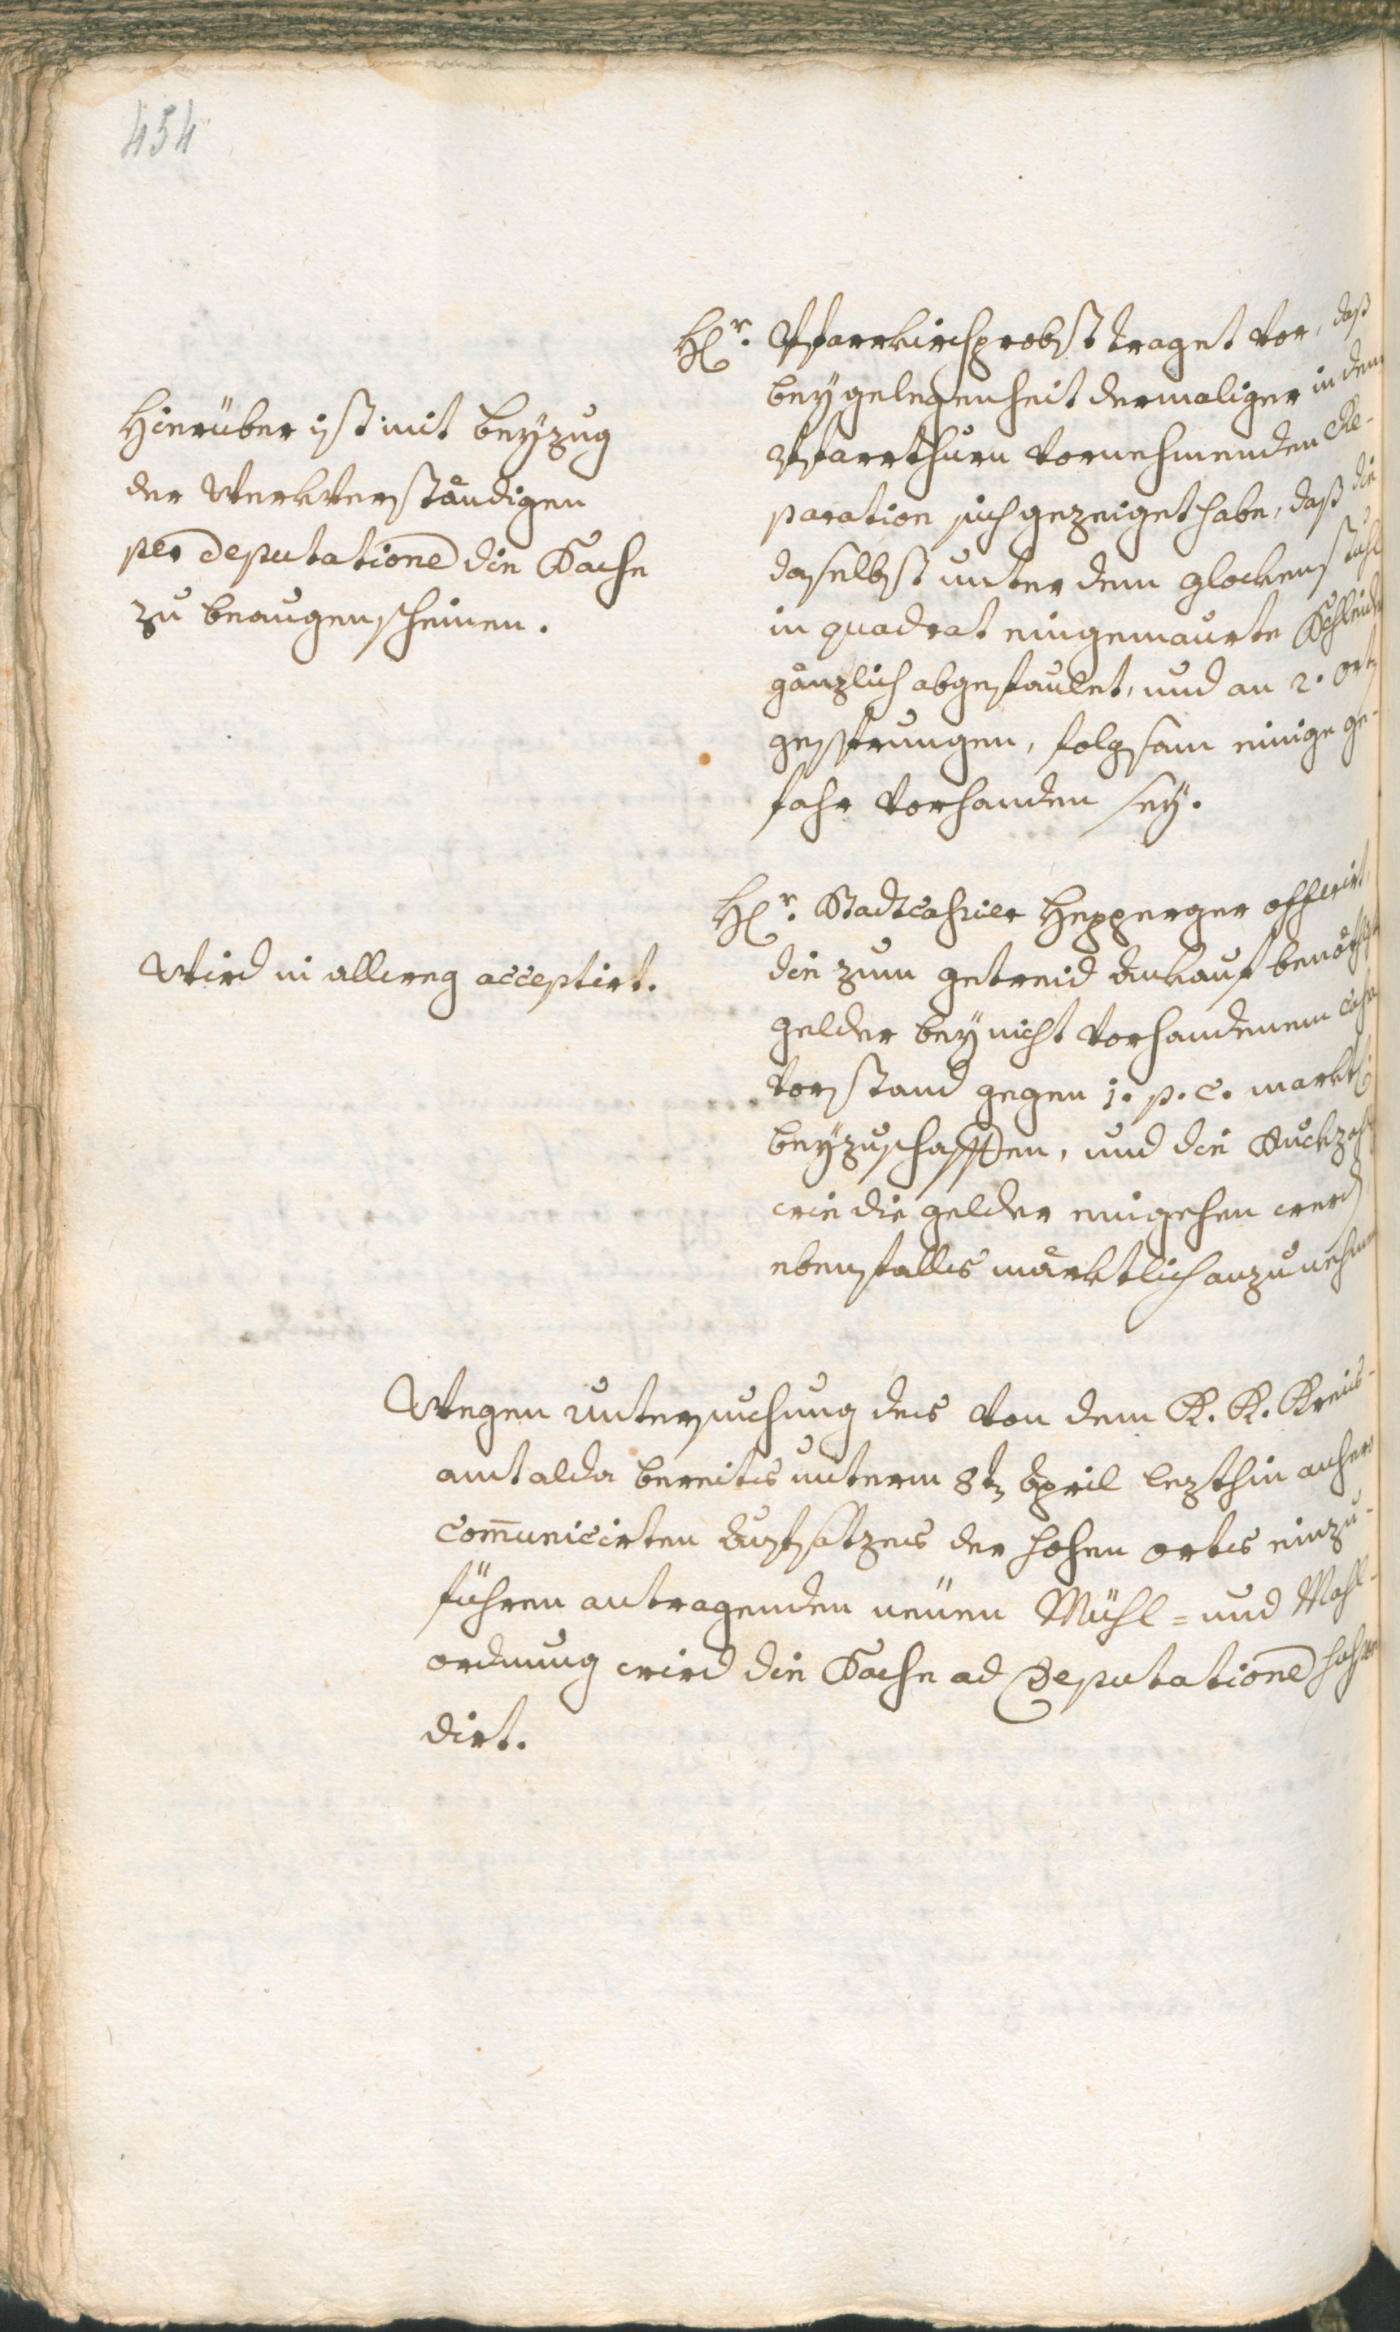 454
Hr. Pfarrkirchprobst traget vor, daß
bey gelegenheit dermaliger in dem
Pfarrthurn vornehmenden Re-
paration sich gezeiget habe, daß die
daselbst unter dem glockenstuhl
in quadrat eingemaurte
gänzlich abgefaulet, und an 2. Ort
gesprungen, folgsam einige ge-
fahr vorhanden sey.
Hierüber ist mit beyzug
der Werkverständigen
per deputatione die Sache
zu beaugenscheinen.
Hr. Stadtcassier Hepperger offerirt,
die zum getreid Ankauf benöthigte
gelder bey nicht vorhandenem Cassa
vorstand gegen 1. p. C. marktl:
beyzuschaffen, und die Ruckzahl
wie die gelder eingehen werd
ebenfalls märktlich anzunehmen
Wird in allweg acceptirt.
Wegen untersuchung des von dem K. K. Kreis-
amt alda bereits unterm 8t April lezthin anhero
communicirten Aufsatzes der hohen orts einzu-
führen antragenden neüen Mühl- und Mahl-
ordnung wird die Sache ad Deputatione
dirt.